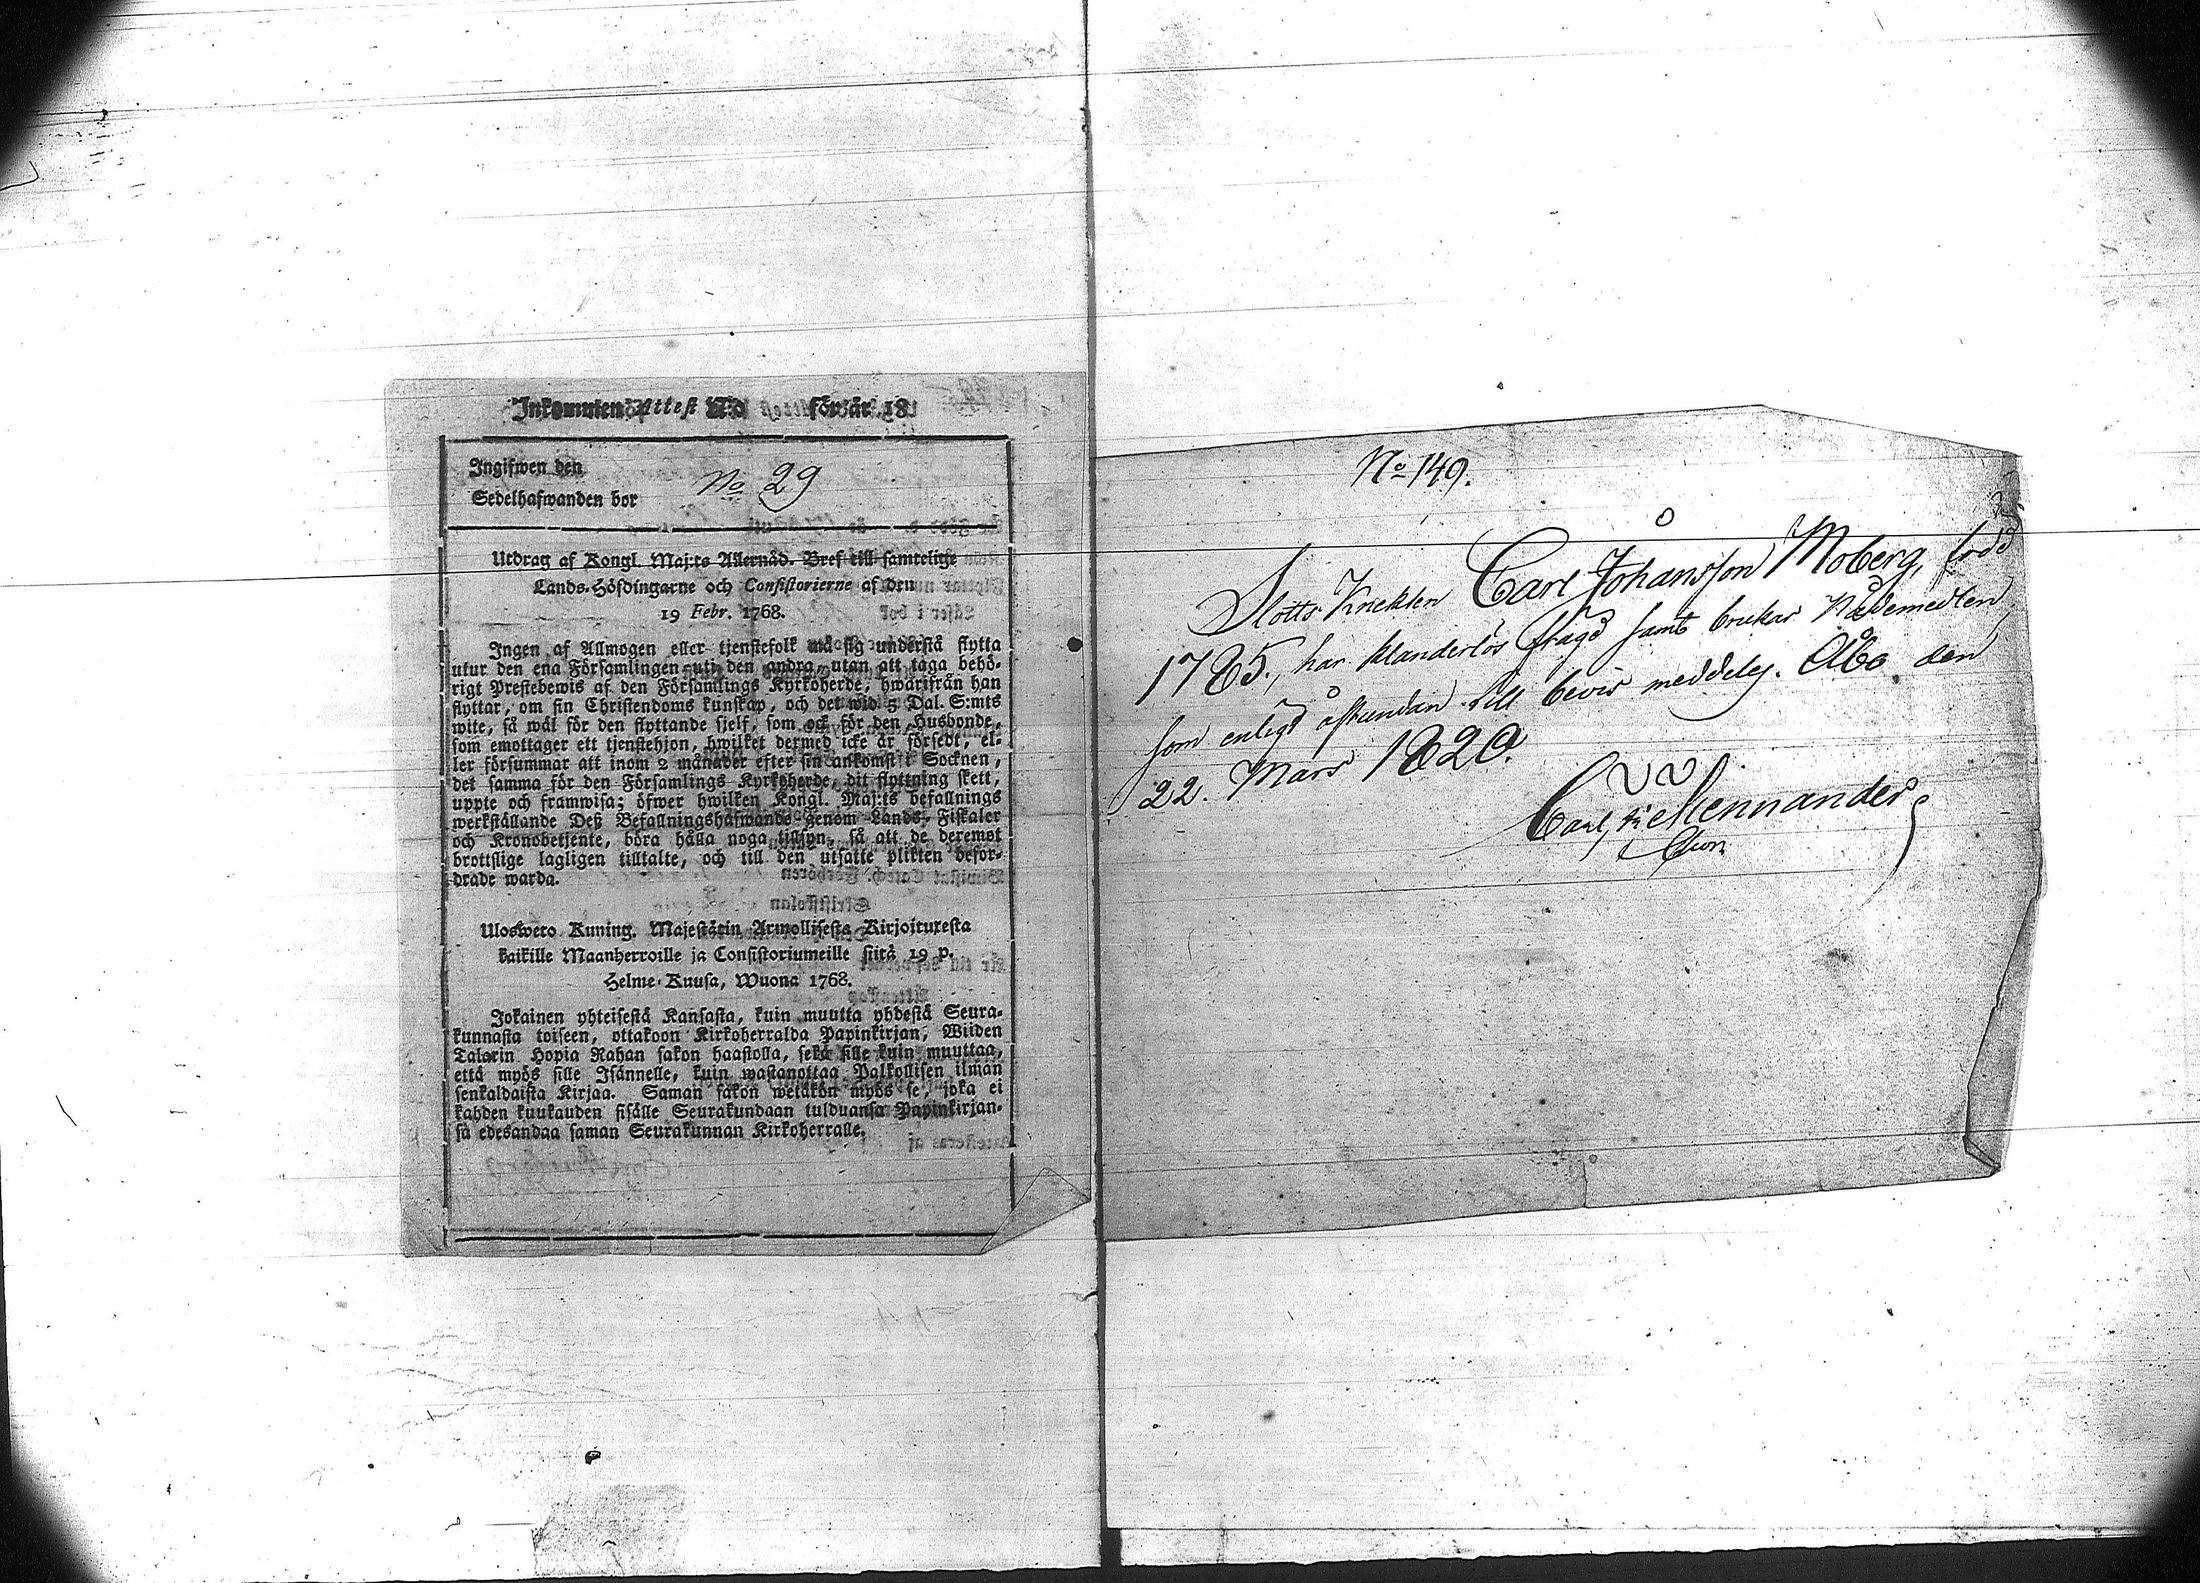 Inkommen Attest N:o för år 18
Ingifwen den
No 29
Sedelhafwanden bor
Utdrag af Kongl. Maj:ts Allernåd. Bref till samtelige
Lands-Höfdingarne och Consistorierne af den
19 Febr. 1768.
Ingen af Allmogen eller tjenstefolk må sig understå flytta
utur den ena Församlingen uti den andra, utan att taga behö-
rigt Prestebewis af den Församlings Kyrkoherde, hwarifrån han
flyttar, om sin Christendoms kunskap, och det wid 5 Dal. S:mts
wite, så wäl för den flyttande sjelf, som och för den Husbonde,
som emottager ett tjenstehjon, hwilket dermed icke är försedt, el-
ler försummar att inom 2 månader efter sin ankomst i Socknen,
det samma för den Församlings Kyrkoherde, dit flyttning skett,
uppte och framwisa; öfwer hwilken Kongl. Maj:ts befallnings
werkställande Deß Befallningshafwande genom Lands-Fiskaler
och Kronobetjente, böra hålla noga tillsyn, så att de deremot
brottslige lagligen tilltalte, och till den utsatte plikten befor-
drade warda.
Ulosweto Kuning. Majestätin Armollisesta Kirjoituxesta
kaikille Maanherroille ja Consistoriumeille siitä 19 p.
Helme-Kuusa, Wuona 1768.
Jokainen yhteisestä Kansasta, kuin muutta yhdestä Seura-
kunnasta toiseen, ottakoon Kirkoherralda Papinkirjan, Wiiden
Talarin Hopia Rahan sakon haastolla, sekä sille kuin muuttaa,
että myös sille Isännelle, kuin wastanottaa Palkollisen ilman
senkaldaista Kirjaa. Saman sakon wetäkön myös se, joka ei
kahden kuukauden sisälle Seurakundaan tulduansa Papinkirjan-
sa edesandaa saman Seurakunnan Kirkoherralle.
No 149.
Slotts Knekten Carl Johansson Moberg, född
1785., har klanderlös frägd samt brukar Nådemedlen,
som enligt åstundan till bevis meddelas. Åbo den
22. Mars 1820.
Carl Mennander